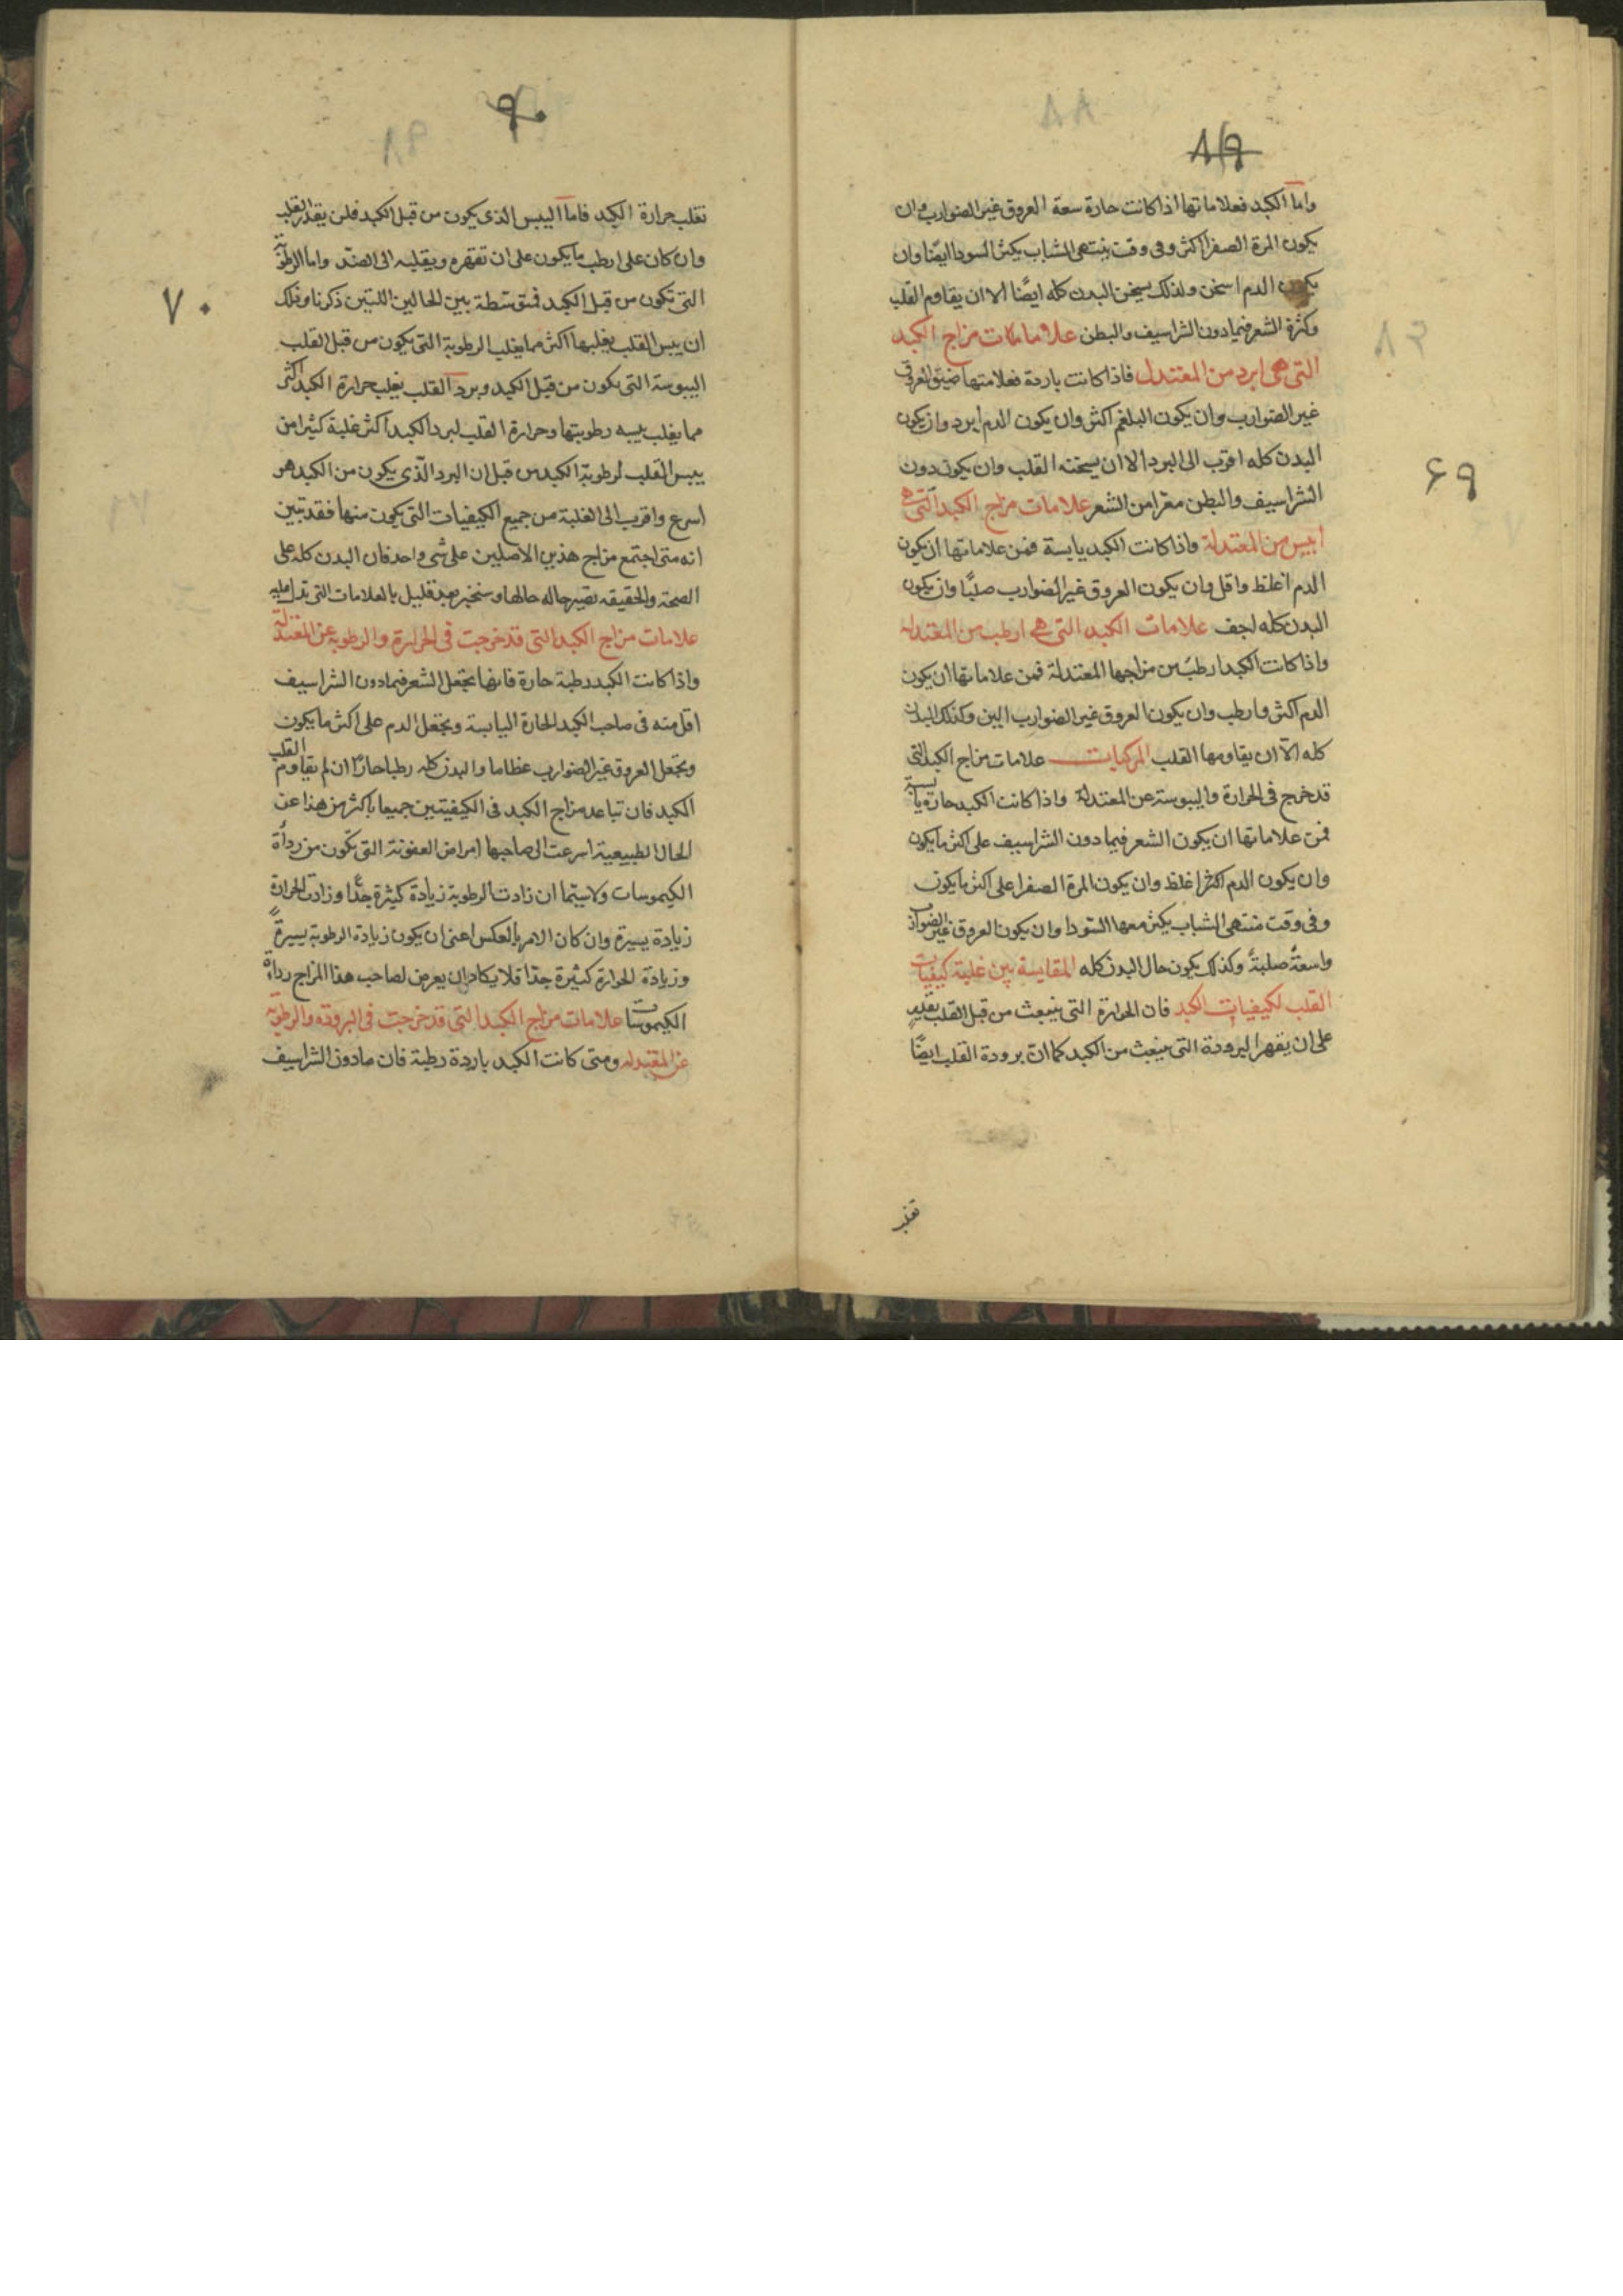 ٨٩
واما الكبد فعلاماتها اذا كانت حارة سعة العروق غير الضوارب وان
يكون المرة الصفرا اكثر وفى وقت منتهى الشباب يكثر السودا ايضا وان
يكون الدم اسخن ولذلك يسخن البدن كله ايضًا الا ان يقاوم القلب
وكثرة الشعر فيما دون الشراسيف والبطن علامات مزاج الكبد
التى هى ابرد من المعتدل فاذا كانت باردة فعلامتها ضيق العروق
غير الضوارب وان يكون البلغم اكثر وان يكون الدم ابرد وان يكون
البدن كله اقرب الى البرد الا ان يسخنه القلب وان يكون دون
الشراسيف والبطن معرا من الشعر علامات مزاج الكبد التى هى
ايبس من المعتدلة واذا كانت الكبد يابسة فمن علاماتها ان يكون
الدم اغلظ واقل وان يكون العروق غير الضوارب صلبًا وان يكون
البدن كله اجف علامات الكبد التى هى ارطب من المعتدله
واذا كانت الكبد ارطب من مزاجها المعتدلة فمن علاماتها ان يكون
الدم اكثر وارطب وان يكون العروق غير الضوارب الين وكذلك البدن
كله الا ان يقاومها القلب المركبات علامات مزاج الكبد التى
قد خرج فى الحرارة واليبوسة عن المعتدلة واذا كانت الكبد حارة يابسة
فمن علاماتها ان يكون الشعر فيما دون الشراسيف على اكثر ما يكون
وان يكون الدم اكثر اغلظ وان يكون المرة الصفرا على اكثر ما يكون
وفى وقت منتهى الشباب يكثر معها السودا وان يكون العروق غير الضوارب
واسعةً صلبةً وكذلك يكون حال البدن كله المقايسة بين غلبة كيفيات
القلب لكيفيات الكبد فان الحرارة التى ينبعث من قبل القلب تقدر
على ان يقهر البرودة التى ينبعث من الكبد كما ان برودة القلب ايضًا
تغلب
٦٩
٩٠
تغلب حرارة الكبد فاما اليبس الذى يكون من قبل الكبد فلن يقدر القلب
وان كان على ارطب ما يكون على ان تقهره ويقلبه الى الضد واما الرطوبة
التى تكون من قبل الكبد فمتوسطة بين الحالين اللتين ذكرنا وذلك
ان يبس القلب يغلبها اكثر مما يغلب الرطوبة التى يكون من قبل القلب
اليبوسة التى يكون من قبل الكبد وبرد القلب يغلب حرارة الكبد اكثر
مما يغلب يبسه رطوبتها وحرارة القلب لبرد الكبد اكثر غلبة كثيرا من
يبس القلب لرطوبة الكبد من قبل ان البرد الذى يكون من الكبد هو
اسرع واقرب الى الغلبة من جميع الكيفيات التى يكون منها فقد تبين
انه متى اجتمع مزاج هذين الاصلين على شى واحد فان البدن كله على
الصحة والحقيقه تصير حاله حالها وسنخبر بعد قليل بالعلامات التى تدل عليه
علامات مزاج الكبد التى قد خرجت فى الحرارة والرطوبة عن المعتدلة
واذا كانت الكبد رطبة حارة فانها تجعل الشعر فيما دون الشراسيف
اقل منه فى صاحب الكبد الحارة اليابسة وتجعل الدم على اكثر ما يكون
وتجعل العروق غير الضوارب عظاما والبدن كله رطبا حارًا ان لم يقاوم القلب
الكبد فان تباعد مزاج الكبد فى الكيفيتين جميعا باكثر من هذا عن
الحال الطبيعية اسرعت الى صاحبها امراض العفونة التى تكون من رداة
الكيموسات ولا سيما ان زادت الرطوبة زيادة كثيرة جدًا وزادت الحرارة
زيادة يسيرة وان كان الامر بالعكس اعنى ان يكون زيادة الرطوبة يسيرةً
وزيادة الحرارة كثيرة جدًا فلا يكاد ان يعرض لصاحب هذا المزاج رداة
الكيموسات علامات مزاج الكبد التى قد خرجت فى البرودة والرطوبة
عن المعتدله ومتى كانت الكبد باردة رطبة فان ما دون الشراسيف
٧٠